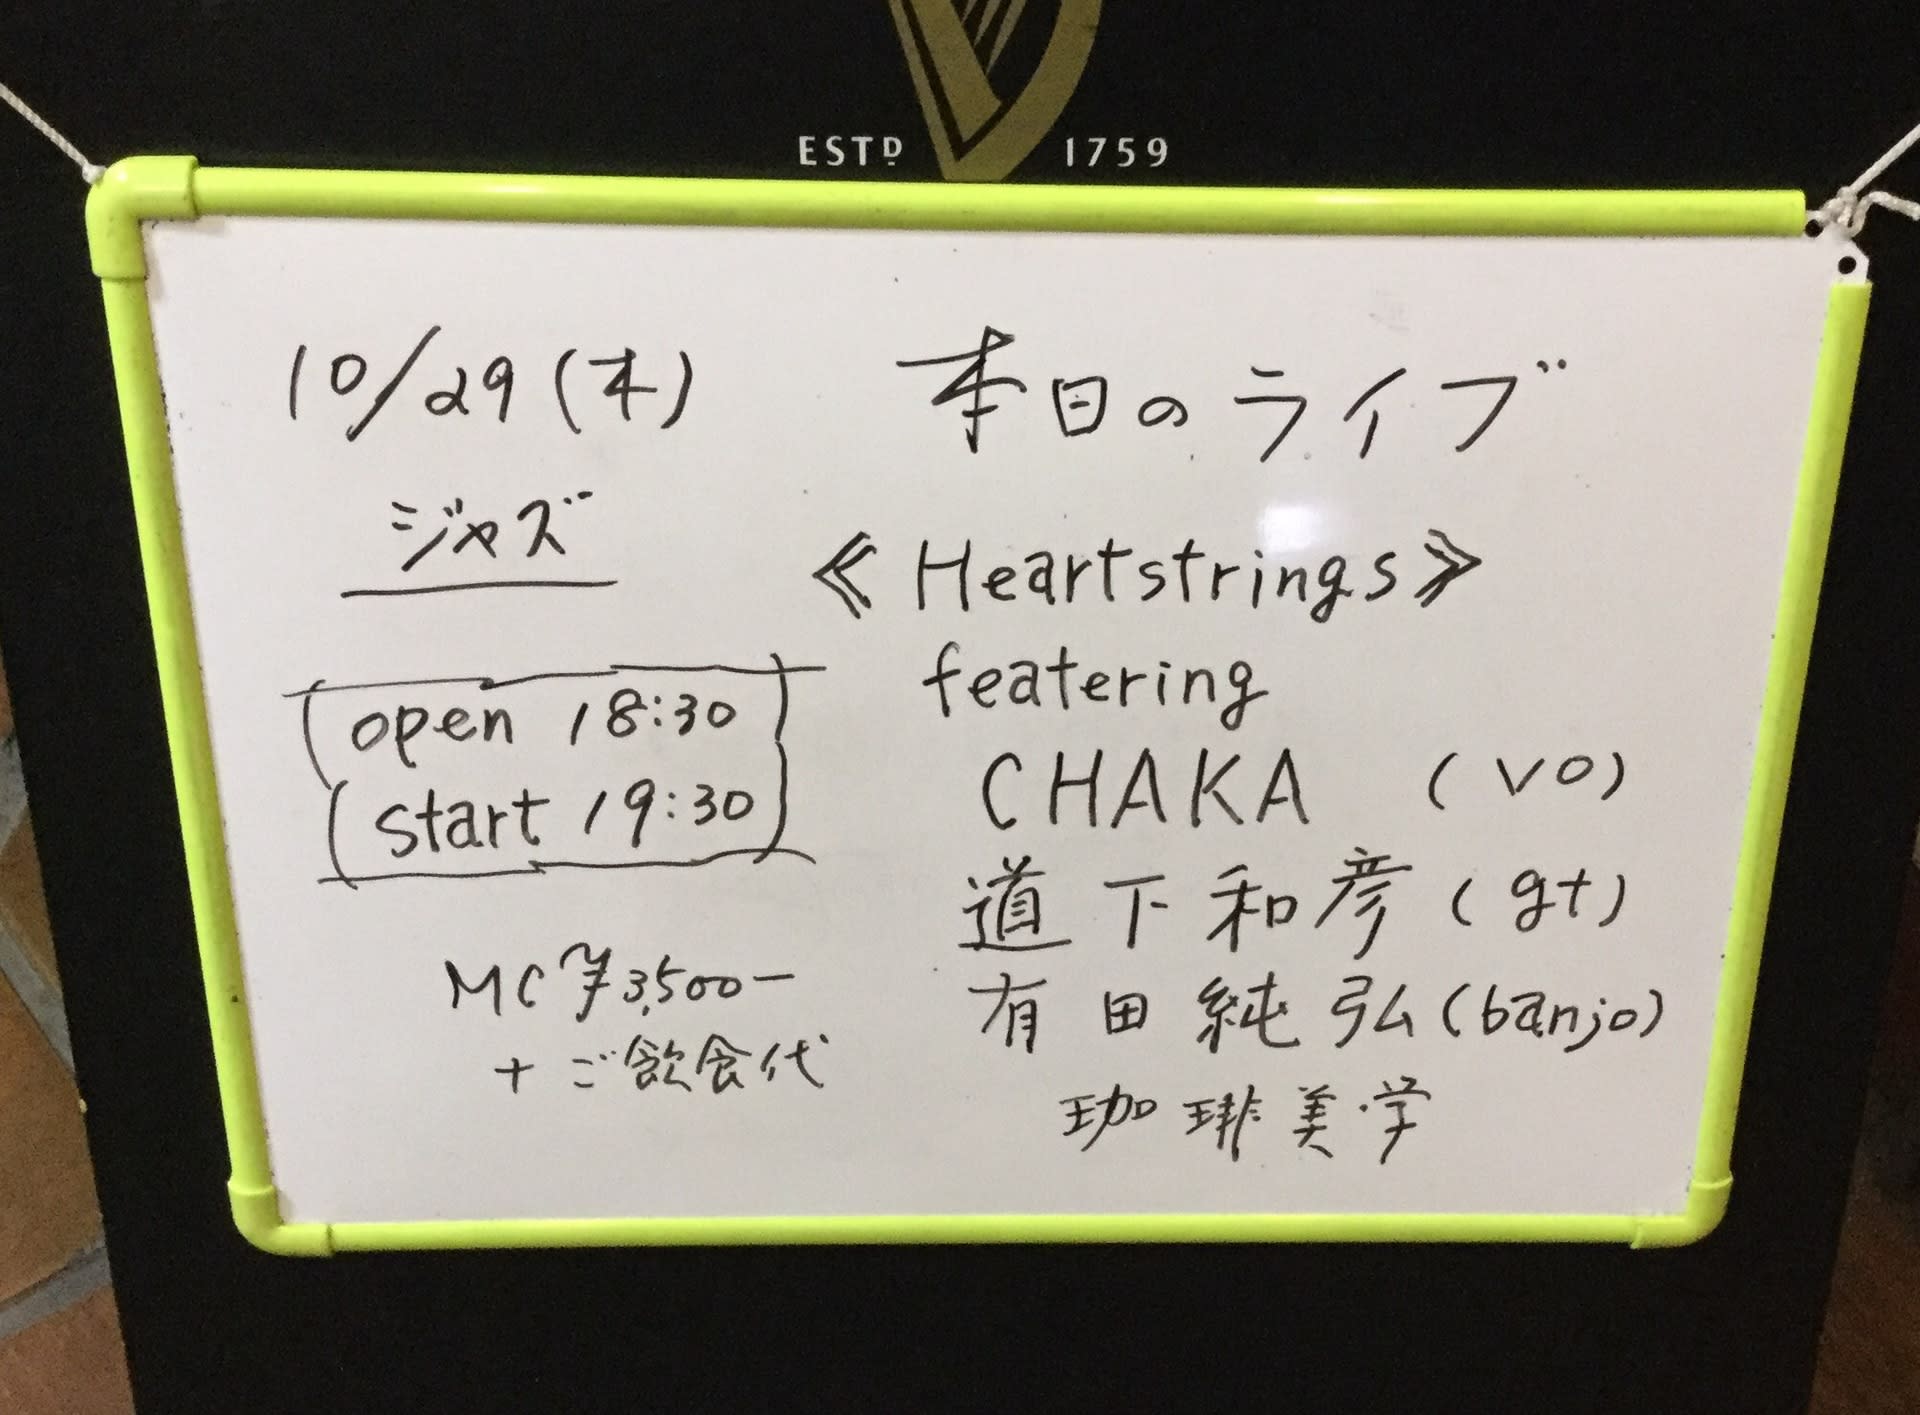 ESTD 1759
10/29(木)
ジャズ
open 18:30
start 19:30
MC ¥3,500ー
+ ご飲食代
本日のライブ
《Heartstrings》
featering
CHAKA (vo)
道下和彦(gt)
有田純弘(banjo)
珈琲美学